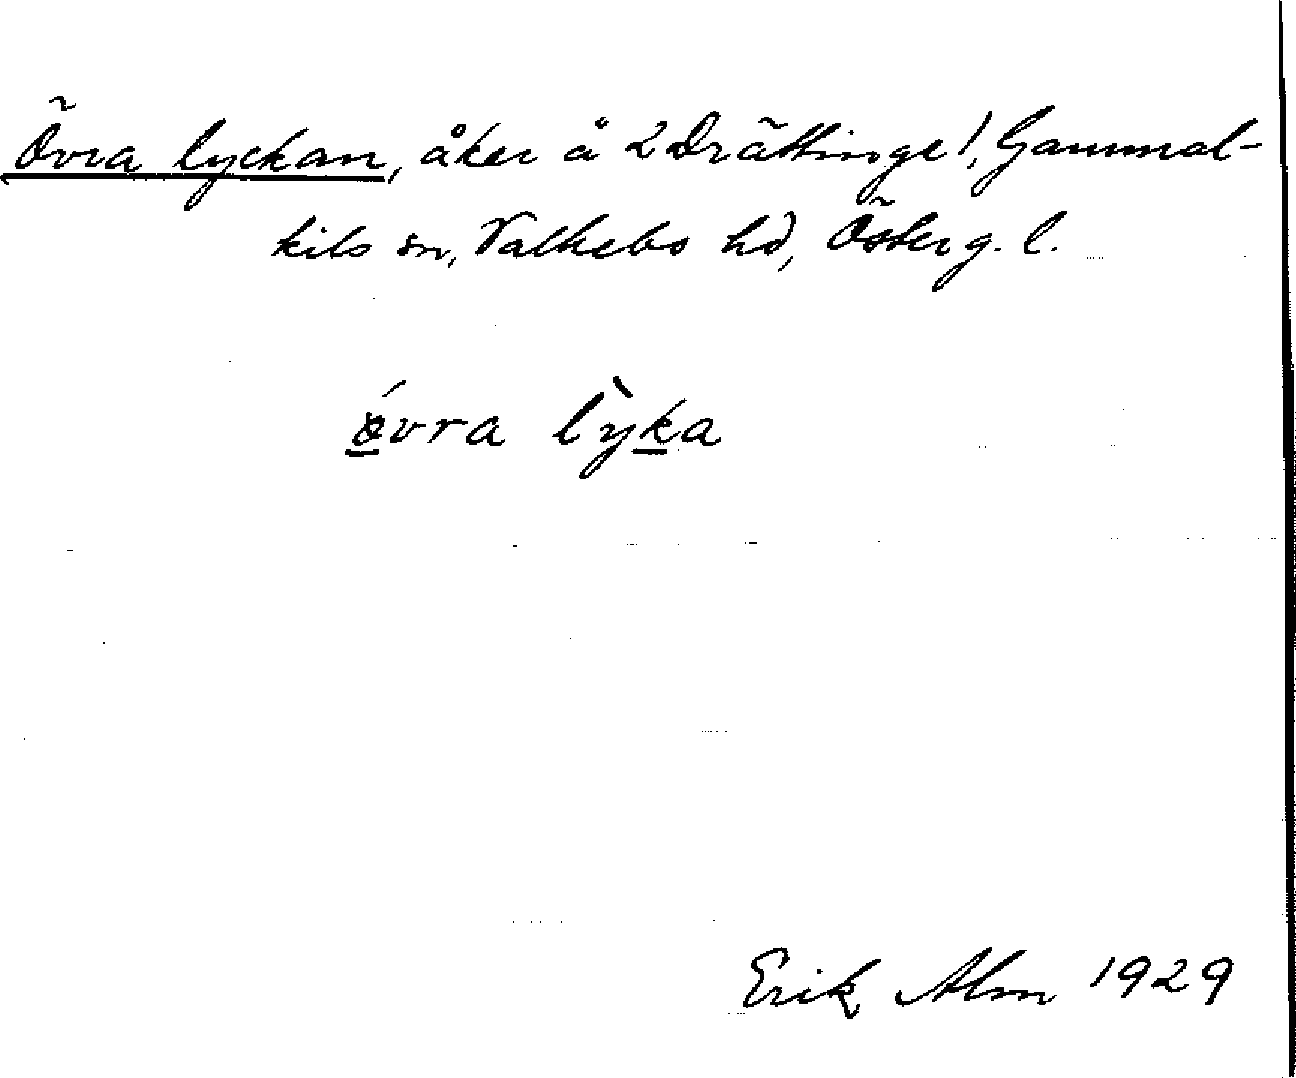 Övra lyckan, åker å 2 Drättinge 1, Gammal-
kils sn, Valkebo hd, Österg. l.
övra lỳka
Erik Alm 1929